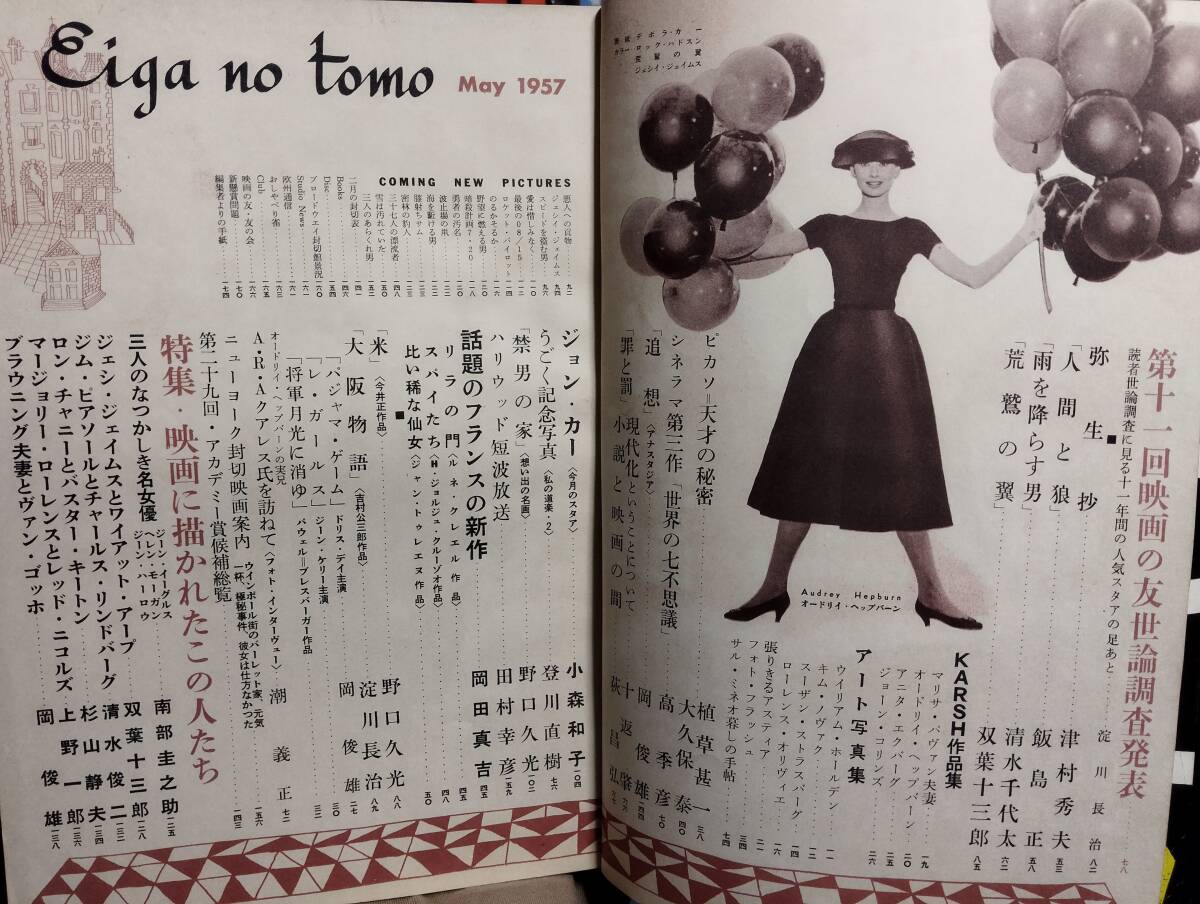 表紙 デボラ・カー
カラー・ロック・ハドスン
翼
ジェシイ・ジェイムス
第十一回映画の友世論調査発表 七八
読者世論調査に見る十一年間の人気スタアの足あと 淀川長治 八二
■
弥生抄 津村秀夫 五三
「人間と狼」 飯島正 五六
「雨を降らす男」 清水千代太 六二
「荒鷲の翼」 双葉十三郎 八五
Audrey Hepburn
オードリイ・ヘップバーン
KARSH作品集
マリサ・パヴァン夫妻 一九
オードリイ・ヘップバーン 二〇
アニタ・エクバーグ 二四
ジョーン・コリンズ 二六
アート写真集
ウイリアム・ホールデン 一一
キム・ノヴァク 一二
スーザン・ストラスバーグ 一四
ローレンス・オリヴィエ 一六
張りきるアスティア 二一
フォト・フラッシュ
サル・ミネオ暮しの手帖 七四
ピカソ=天才の秘密 植草甚一 三八
シネラマ第三作「世界の七不思議」 大久保泰 四〇
「追想」〈アナスタジア〉 高季彦 七〇
現代化ということについて 岡俊雄 六四
「罪と罰」小説と映画の間 十返肇 六六
荻昌弘 六七
Eiga no tomo May 1957
COMING NEW PICTURES
悪人への貢物 九二
ジェシイ・ジェイムス 九四
スピードを盗む男 九六
愛は惜しみなく
最後の08/15
ロケット・パイロット
のるかそるか
野望に燃える男
暗殺計画7・20
勇者の汚名
波止場の鼠
海を駈ける男
膝射ちサム
密林の豹人
三十七人の漂流者
雪は汚れていた
三人のあらくれ男
二月の封切表
Books
Disc
ブロードウェイ封切館景況
Studio News
欧州通信
おしゃべり雀
Club
映画の友・友の会
新懸賞問題 一七〇
編集者よりの手紙 一七四
ジョン・カー〈今月のスタア〉 小森和子 一〇四
うごく記念写真〈私の道楽・2〉 登川直樹 七六
「禁男の家」〈想い出の名画〉 野口久光 一〇二
ハリウッド短波放送 田村幸彦 五九
話題のフランスの新作 岡田真吉 四五
リラの門〈ルネ・クレエル作品〉 四五
スパイたち〈H・ジョルジュ・クルーゾオ作品〉 四八
比い稀な仙女〈ジャン・トゥレエヌ作品〉 五〇
■
「米」〈今井正作品〉 野口久光 八八
「大阪物語」〈吉村公三郎作品〉 淀川長治 八九
「パジャマ・ゲーム」ドリス・デイ主演 岡俊雄 二七
「レ・ガールス」ジーン・ケリー主演
「将軍月光に消ゆ」パウエル=プレスバーガー作品
オードリイ・ヘップバーンの実兄
A・R・Aクアレス氏を訪ねて〈フォト・インターヴュー〉 潮義正 七二
ニューヨーク封切映画案内 ウインポール街のバーレット家、元気一杯、極秘事件、彼女は仕方なかった 一五六
第二十九回・アカデミー賞候補総覧 一四三
特集・映画に描かれたこの人たち
三人のなつかしき名女優 ジーン・イーグルス ヘレン・モーガン ジーン・ハーロウ 南部圭之助 一二五
ジェシ・ジェイムスとワイアット・アープ 双葉十三郎 一二八
ジム・ピアソールとチャールス・リンドバーグ 清水俊二 一三二
ロン・チャニーとバスター・キートン 杉山静夫 一三四
マージョリー・ローレンスとレッド・ニコルズ 上野一郎 一三六
ブラウニング夫妻とヴァン・ゴッホ 岡俊雄 一三八